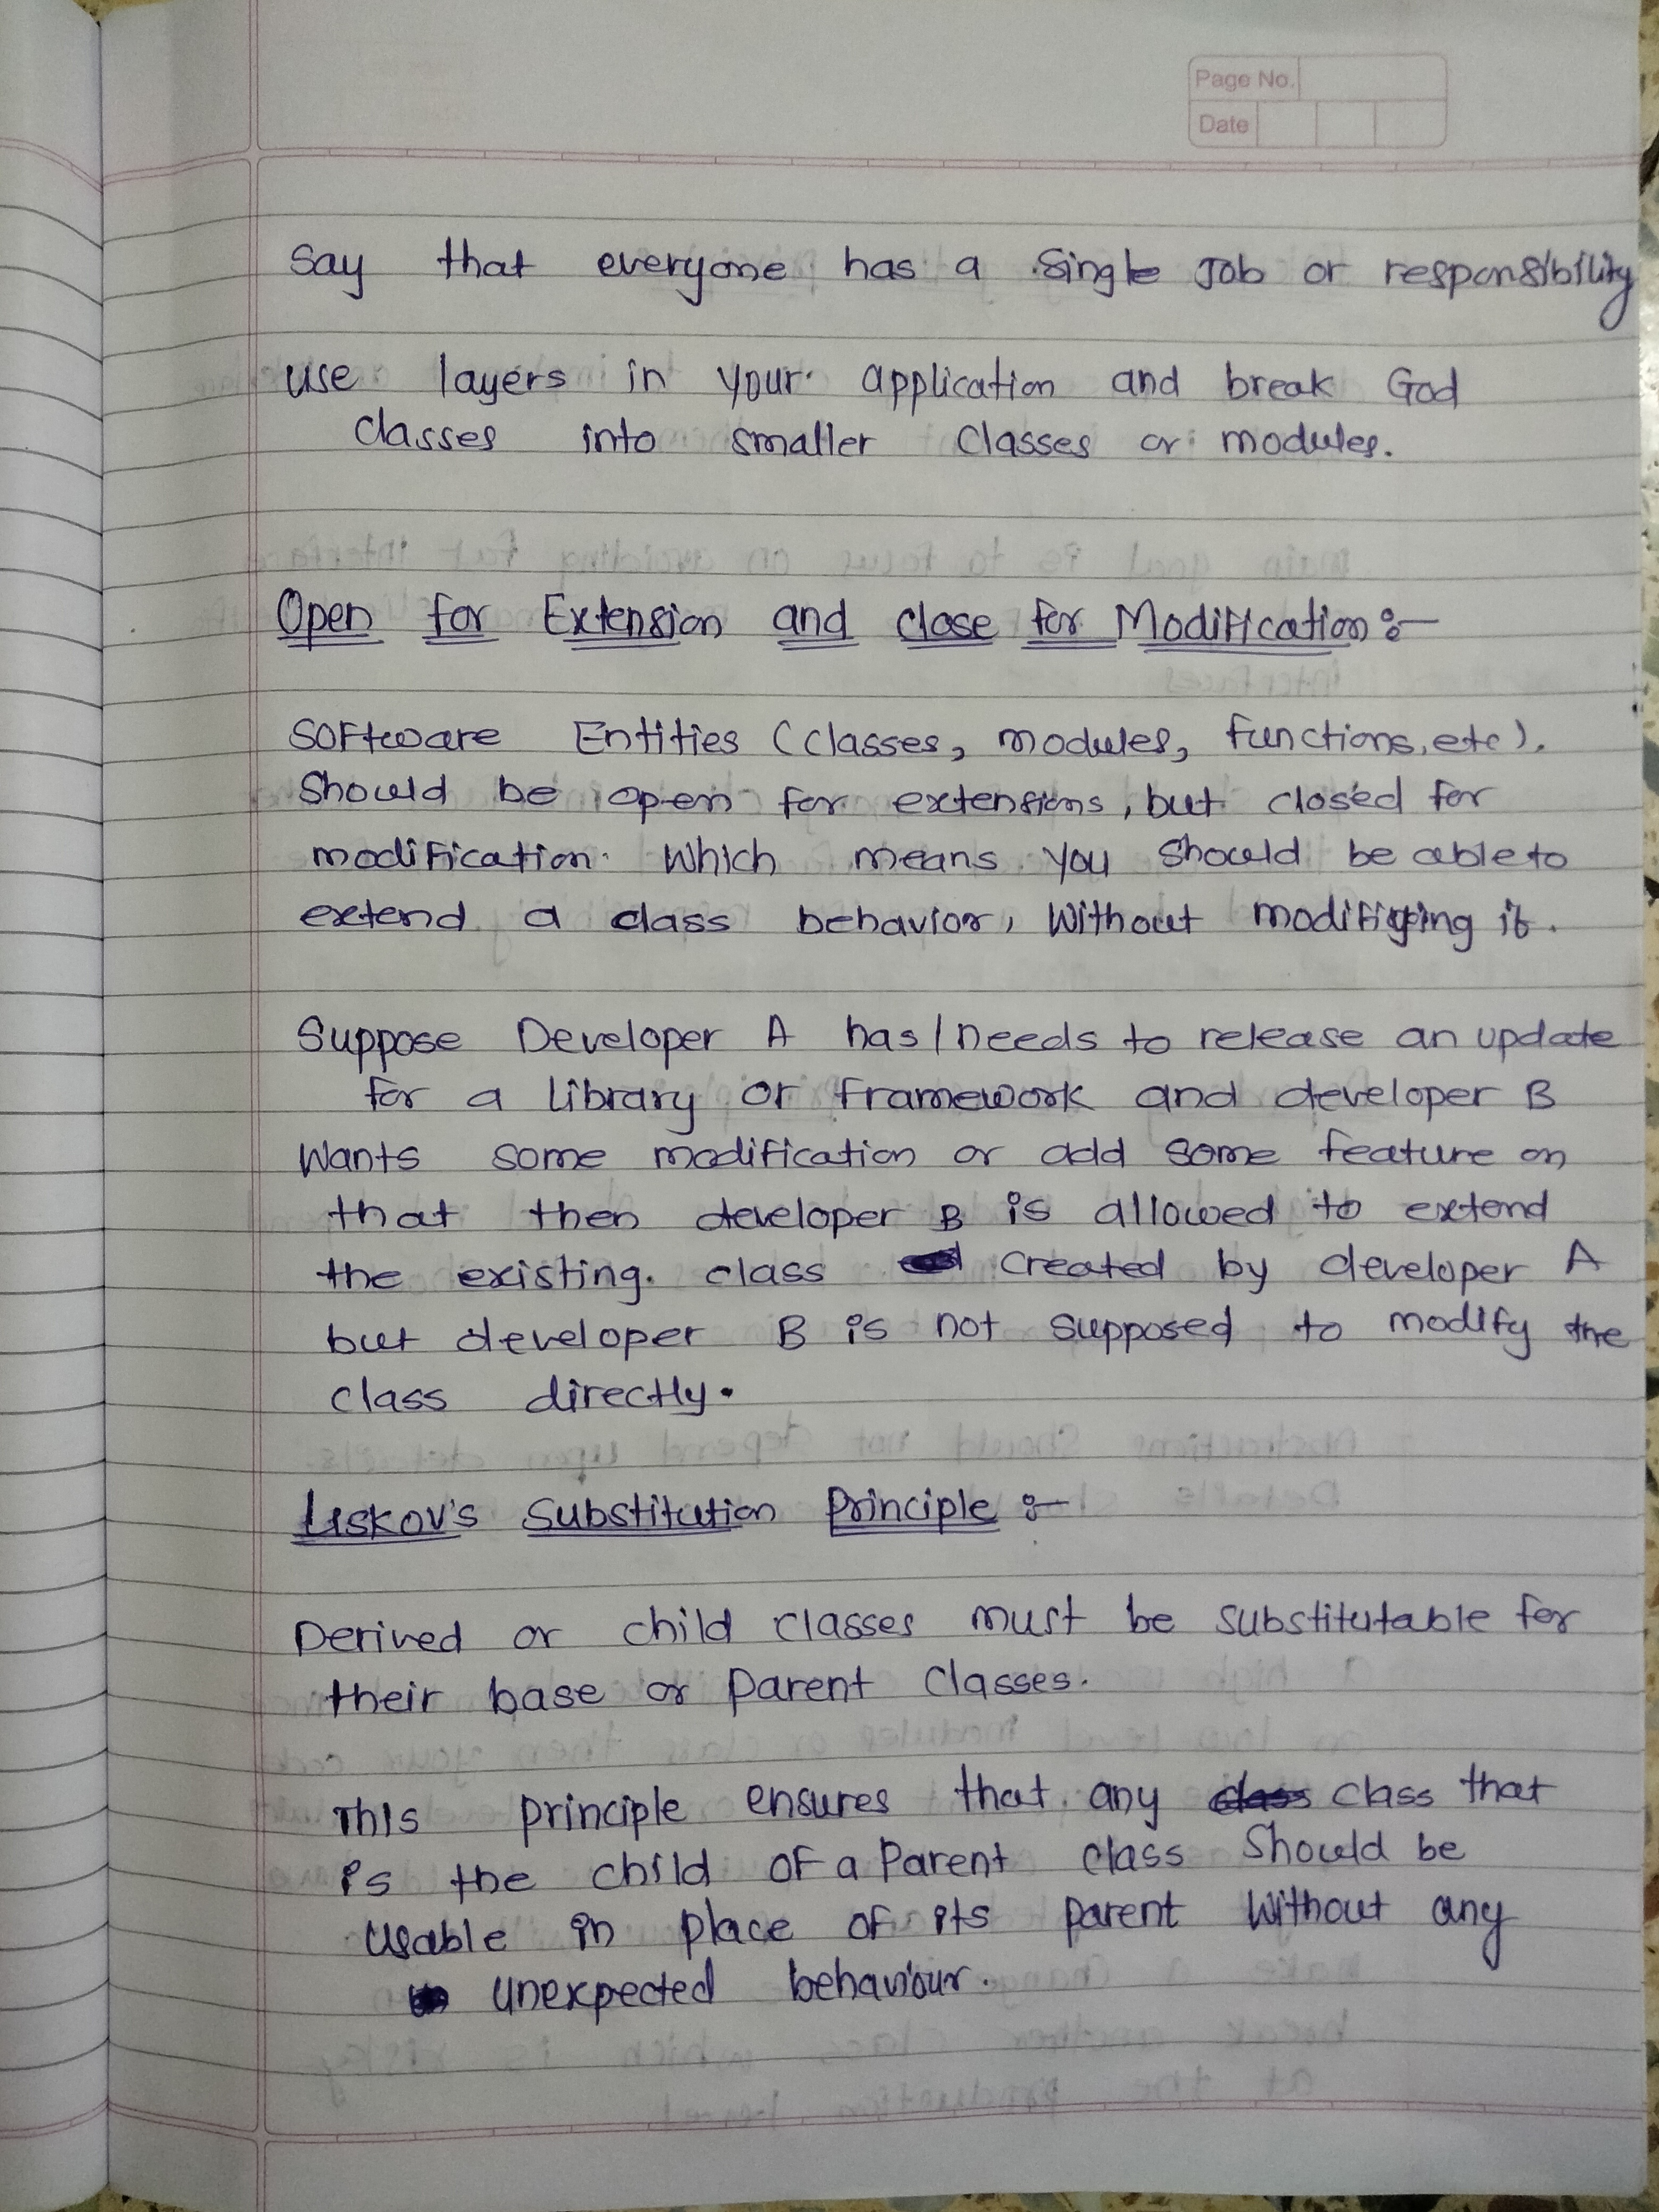 Page No.
Date
Say that everyone has a single Job or responsibility
use layers in your application and break God
classes into smaller classes or modules.
Open for Extension and close for Modification :-
Software Entities (classes, modules, functions, etc).
Should be open for extensions, but closed for
modification. Which means you should be able to
extend a class behavior, Without modifying it.
Suppose Developer A has/needs to release an update
for a library or framework and developer B
Wants some modification or add some feature on
that then developer B is allowed to extend
the existing. class created by developer A
but developer B is not supposed to modify the
class directly.
Liskov's Substitution Principle :-
Derived or child classes must be substitutable for
their base or parent classes.
This principle ensures that any class class that
is the child of a Parent class Should be
Usable in place of its parent Without any
unexpected behaviour.